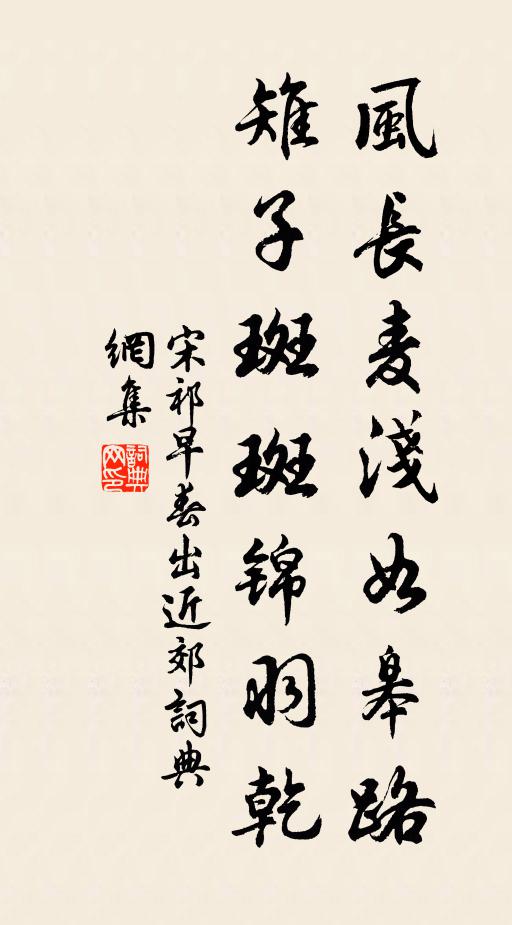 風長麦淺如皋路
雉子斑斑锦羽乾
宋祁早春出近郊詞典
網集
詞典网印